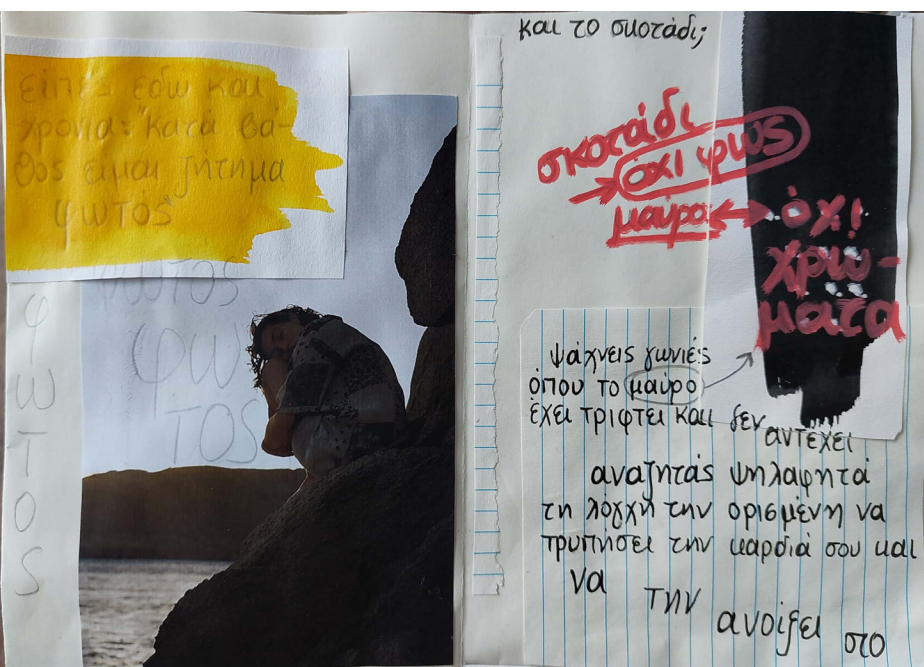 είπες εδώ και
χρόνια: "κατά βά-
θος είμαι ζήτημα
φωτός"
φωτός
φω
τος
φ
ω
τ
ο
ς
και το σκοτάδι;
σκοτάδι
όχι φως
μαύρο
όχι
χρώ-
ματα
ψάχνεις γωνιές
όπου το μαύρο
έχει τριφτεί και δεν αντέχει
αναζητάς ψηλαφητά
τη λόγχη την ορισμένη να
τρυπήσει την καρδιά σου και
να την ανοίξει στο